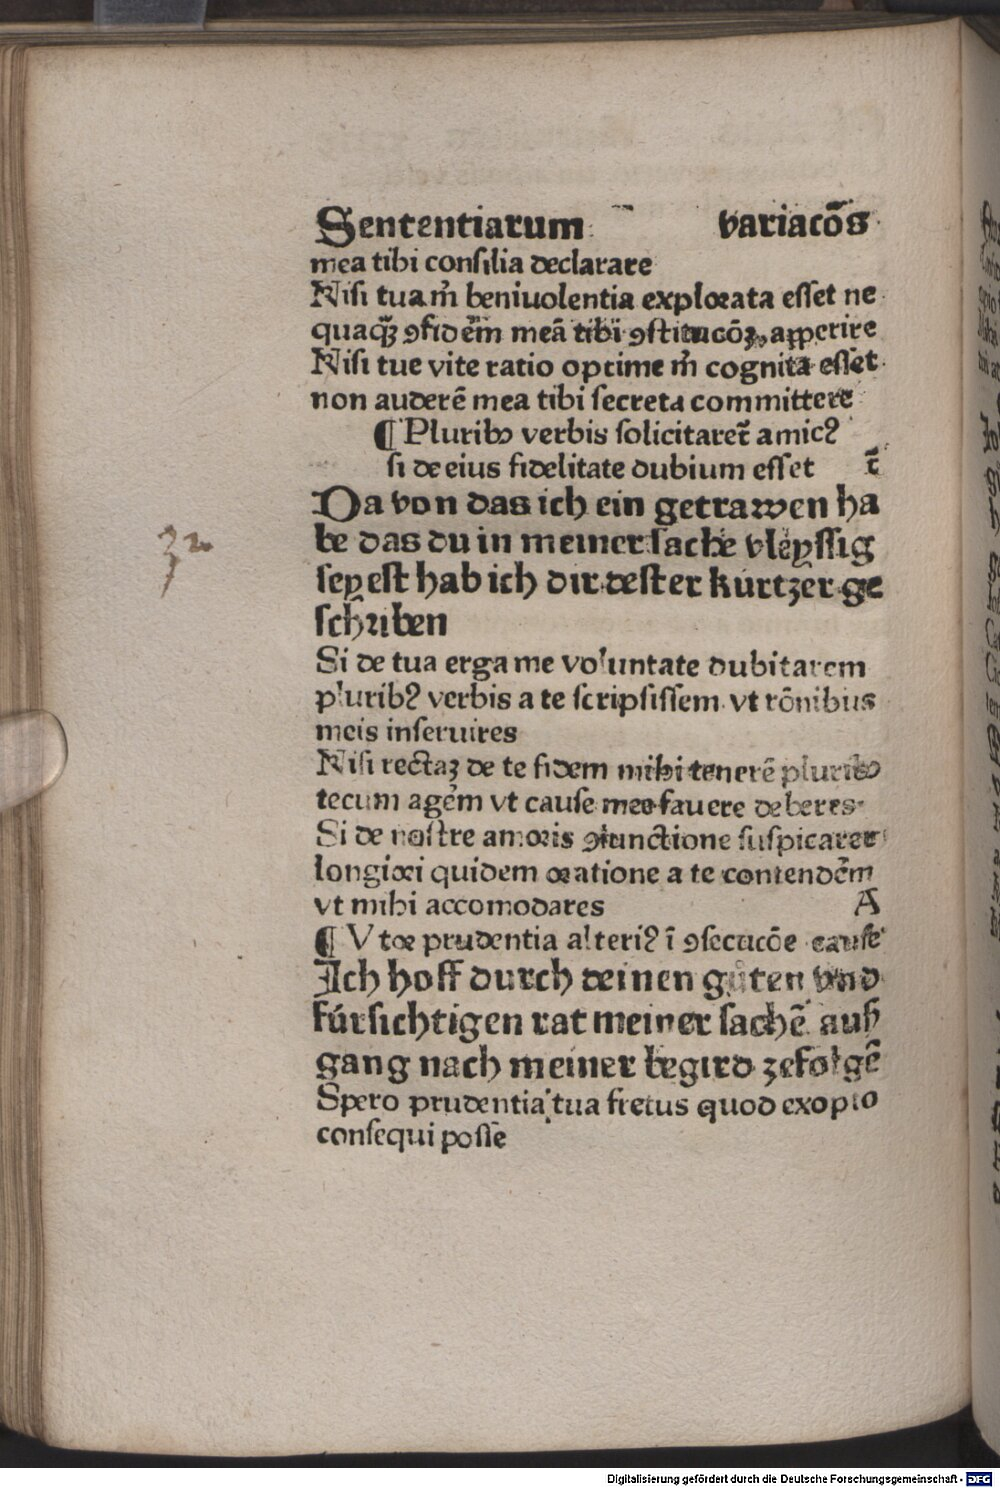 Sententiarum variacōs
mea tibi consilia declarare
Nisi tua m̄ beniuolentia explorata esset ne
quaqȝ ꝯfidēm meā tibi ꝯstitucōꝫ apꝑerire
Nisi tue vite ratio optime m̄ cognita esset
non auderē mea tibi secreta committere
¶ Pluribꝰ verbis solicitaret̄ amicꝰ
si de eius fidelitate dubium esset t̄
Da von das ich ein getrawen ha
be das du in meiner sache vleyssig
seyest hab ich dir dester kúrtzer ge
schriben
Si de tua erga me voluntate dubitarem
pluribꝰ verbis a te scripsissem vt rōnibus
meis inseruires
Nisi rectaꝫ de te fidem mihi tenerē pluribꝰ
tecum agēm vt cause mee fauere deberes
Si de nostre amoris ꝯiunctione suspicarer
longiori quidem oratione a te contendēm
vt mihi accomodares A
¶ Vtor prudentia alteriꝰ ī ꝯsecucōe cause
Ich hoff durch deinen gůten vnd
fúrsichtigen rat meiner sachē auß
gang nach meiner begird zefolgē
Spero prudentia tua fretus quod exopto
consequi posse
32
Digitalisierung gefördert durch die Deutsche Forschungsgemeinschaft - DFG